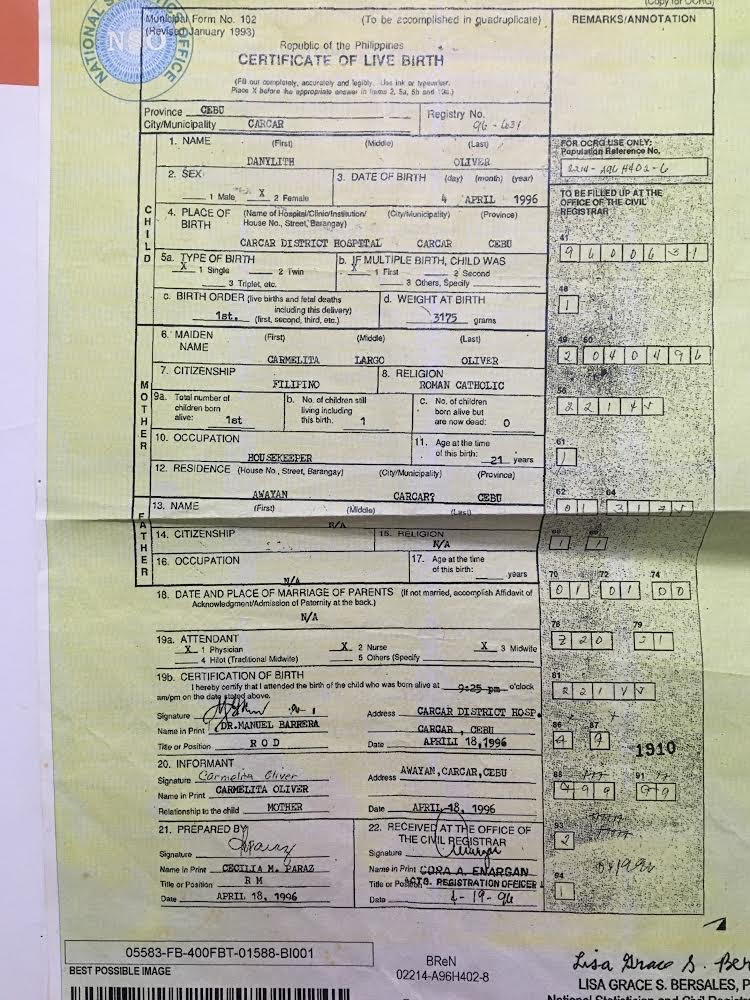 (Copy for OCRG)
Municipal Form No. 102
(Revised January 1993)
(To be accomplished in quadruplicate)
REMARKS/ANNOTATION
NATIONAL STATISTICS OFFICE
NSO
Republic of the Philippines
CERTIFICATE OF LIVE BIRTH
(Fill out completely, accurately and legibly. Use ink or typewriter.
Place X before the appropriate answer in items 2, 5a, 5b and 19a.)
Province CEBU
City/Municipality CARCAR
Registry No.
96-631
CHILD
1. NAME (First) (Middle) (Last)
DANYLITH OLIVER
2. SEX
1 Male X 2 Female
3. DATE OF BIRTH (day) (month) (year)
4 APRIL 1996
4. PLACE OF BIRTH (Name of Hospital/Clinic/Institution/ House No., Street, Barangay) (City/Municipality) (Province)
CARCAR DISTRICT HOSPITAL CARCAR CEBU
5a. TYPE OF BIRTH
X 1 Single 2 Twin
3 Triplet, etc.
b. IF MULTIPLE BIRTH, CHILD WAS
X 1 First 2 Second
3 Others, Specify
c. BIRTH ORDER (live births and fetal deaths including this delivery)
1st. (first, second, third, etc.)
d. WEIGHT AT BIRTH
3175 grams
MOTHER
6. MAIDEN NAME (First) (Middle) (Last)
CARMELITA LARGO OLIVER
7. CITIZENSHIP
FILIPINO
8. RELIGION
ROMAN CATHOLIC
9a. Total number of children born alive: 1st
b. No. of children still living including this birth: 1
c. No. of children born alive but are now dead: 0
10. OCCUPATION
HOUSEKEEPER
11. Age at the time of this birth: 21 years
12. RESIDENCE (House No., Street, Barangay) (City/Municipality) (Province)
AWAYAN CARCAR? CEBU
FATHER
13. NAME (First) (Middle) (Last)
N/A
14. CITIZENSHIP
15. RELIGION
N/A
16. OCCUPATION
N/A
17. Age at the time of this birth: years
18. DATE AND PLACE OF MARRIAGE OF PARENTS (If not married, accomplish Affidavit of Acknowledgment/Admission of Paternity at the back.)
N/A
19a. ATTENDANT
X 1 Physician X 2 Nurse X 3 Midwife
4 Hilot (Traditional Midwife) 5 Others (Specify
19b. CERTIFICATION OF BIRTH
I hereby certify that I attended the birth of the child who was born alive at 9:25 pm o'clock
am/pm on the date stated above.
Signature
Address CARCAR DISTRICT HOSP.
Name in Print DR.MANUEL BARRERA
CARCAR, CEBU
Title or Position ROD
Date APRILI 18,1996
20. INFORMANT
Signature Carmelita Oliver
Address AWAYAN,CARCAR,CEBU
Name in Print CARMELITA OLIVER
Relationship to the child MOTHER
Date APRIL 18, 1996
21. PREPARED BY
Signature
Name in Print CECILIA M. PARAZ
Title or Position RM
Date APRIL 18, 1996
22. RECEIVED AT THE OFFICE OF THE CIVIL REGISTRAR
Signature
Name in Print CORA A. ENARGAN
Title or Position ACTG. REGISTRATION OFFICER I
Date 4-19-96
FOR OCRG USE ONLY:
Population Reference No.
2214-A96H402-6
TO BE FILLED UP AT THE
OFFICE OF THE CIVIL
REGISTRAR
41
9600631
48
1
49 50
2 040496
56
61
1
62 64
01
70 72 74
01 01 00
76 79
81
86 87
1910
88 91
499 99
93
2
94
1
05583-FB-400FBT-01588-BI001
BEST POSSIBLE IMAGE
BReN
02214-A96H402-8
Lisa Grace S. Ber
LISA GRACE S. BERSALES, P
National Statistician and Civil Reg